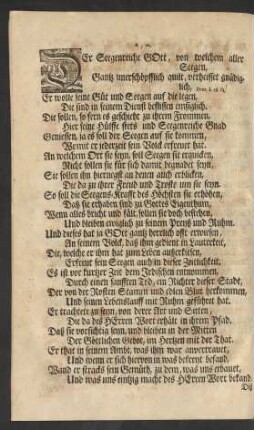 Der Seegenreiche GOtt, von welchem aller
Seegen,
Gantz unerschöpfflich quilt, verheisset gnädig-
lich,
Er wolle seine Güt und Seegen auf die legen,
Die sind in seinem Dienst beflissen emsiglich.
Die sollen, so fern es geschieht zu ihrem Frommen,
Hier seine Hülffe stets und Seegenreiche Gnad
Geniessen, ja es soll der Seegen auf sie kommen,
Womit er jederzeit sein Volck erfreuet hat.
An welchem Ort sie seyn, soll Seegen sie erquicken,
Nicht sollen sie für sich damit begnadet seyn,
Sie sollen ihn hiernegst an denen auch erblicken,
Die da zu ihrer Freud und Troste um sie seyn.
So soll die Seegens-Krafft des Höchsten sie erhöhen,
Daß sie erhaben sind zu Gottes Eigenthum,
Wenn alles bricht und fält, sollen sie doch bestehen,
Und bleiben ewiglich zu seinem Preiß und Ruhm.
Und dieses hat ja GOtt gantz herrlich offt erwiesen,
An seinem Volck, daß ihm gedient in Lauterkeit,
Die, welche er ihm hat zum Leben auserkiesen,
Erfreut sein Seegen auch in dieser Zeitlichkeit.
Es ist vor kurtzer Zeit dem Erdboden entnommen,
Durch einen sanfften Tod, ein Richter dieser Stadt,
Der von der Rosten Stamm und edlen Blut herkommen,
Und seinen Lebenslauff mit Ruhm geführet hat.
Er trachtete zu seyn, von derer Art und Sitten,
Die da des HErren Wort erhält in ihrem Pfad,
Daß sie vorsichtig seyn, und bleiben in der Mitten
Der Göttlichen Gebot, im Hertzen mit der That.
Er that in seinem Amte, was ihm war anvertrauet,
Und wenn er sich hiervon in was befreyt befand,
Wand er stracks sein Gemüth, zu dem, was uns erbauet,
Und was uns eintzig macht des HErren Wort bekand.